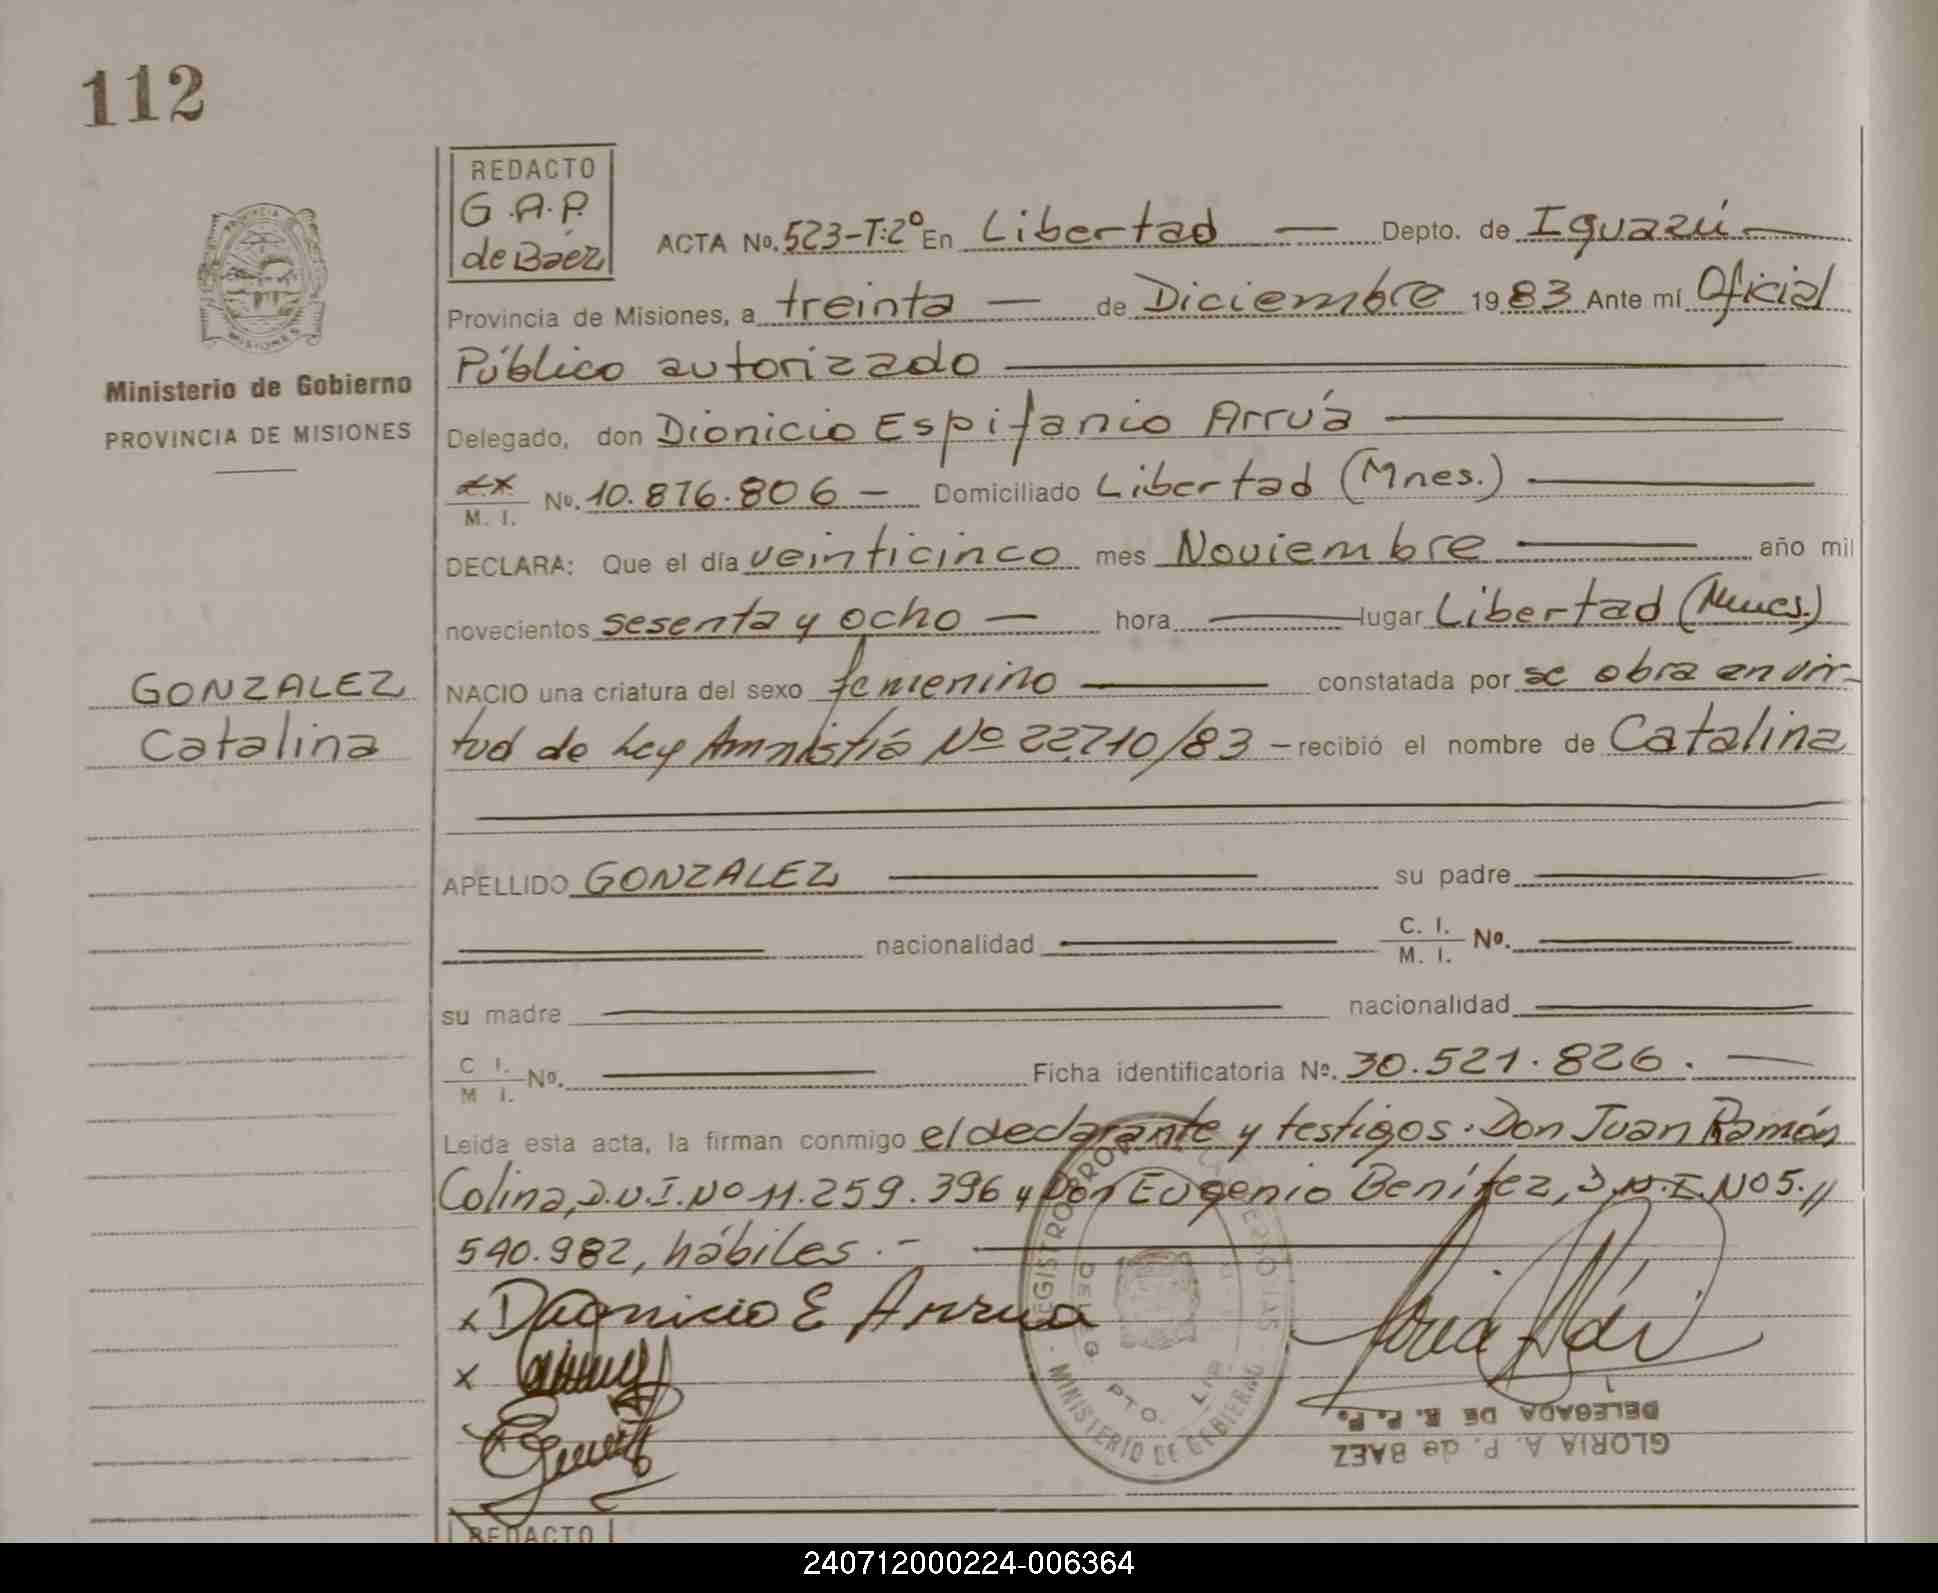 112
REDACTO
G.A.P.
de Báez
ACTA No. 523-T:2º En Libertad — Depto. de Iguazú —
Provincia de Misiones, a treinta — de Diciembre 1983 Ante mí Oficial
Público autorizado
Ministerio de Gobierno
PROVINCIA DE MISIONES
Delegado, don Dionicio Espifanio Arrúa
M. I. No. 10.876.806 — Domiciliado Libertad (Mnes.)
DECLARA: Que el día veinticinco mes Noviembre — año mil
novecientos sesenta y ocho — hora — lugar Libertad (Mnes.)
GONZALEZ
Catalina
NACIO una criatura del sexo femenino — constatada por se obra en vir-
tud de Ley Amnistía Nº 22.710/83 — recibió el nombre de Catalina
APELLIDO GONZALEZ — su padre
nacionalidad — C. I. M. I. No.
su madre — nacionalidad
C I. M I. No. — Ficha identificatoria No. 30.521.826. —
Leida esta acta, la firman conmigo el declarante y testigos. Don Juan Ramón
Colina, D.N.I. Nº 11.259.396 y Don Eugenio Benítez, D.N.I. Nº 5.//
540.982, hábiles.-
x Dionicio E Arrua
x
REGISTRO PROV
MINISTERIO DE GOBIERNO
PTO. LIB
DELEGADA DE R. P. P.
GLORIA A. P. de BAEZ
REDACTO
240712000224-006364